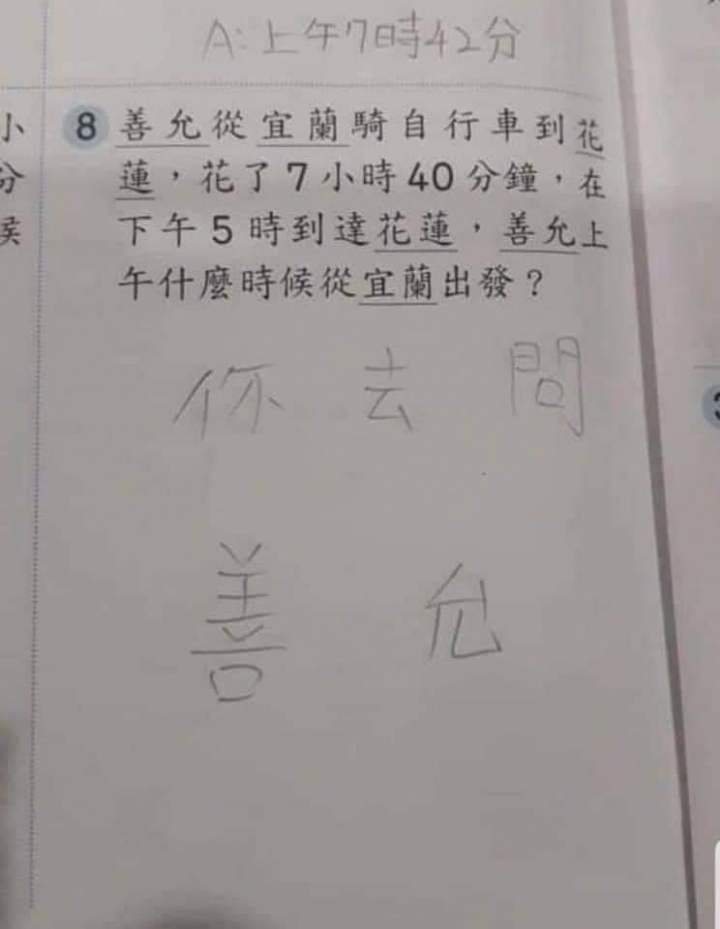 A:上午7時42分
小
分
候
8 善允從宜蘭騎自行車到花
蓮，花了7小時40分鐘，在
下午5時到達花蓮，善允上
午什麼時候從宜蘭出發？
你去問
善允